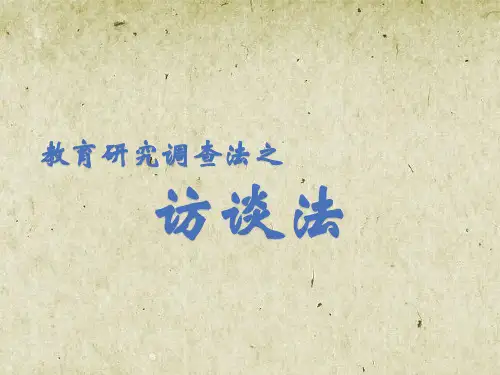 教育研究调查法之
访谈法